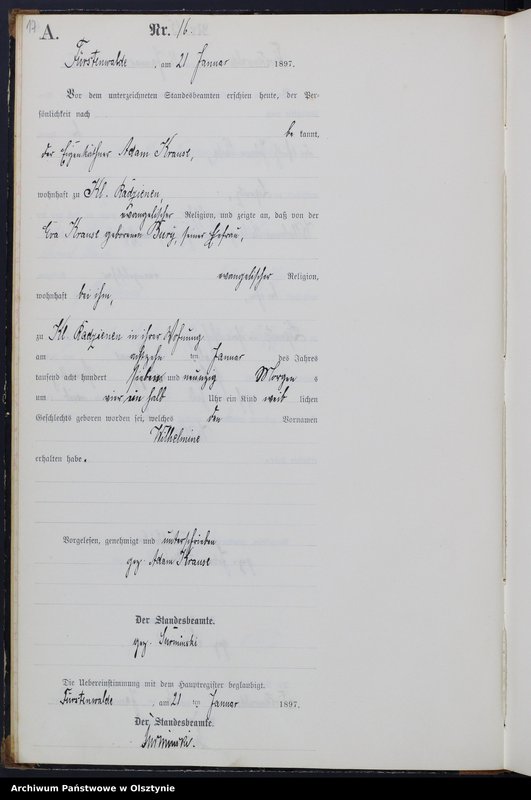 17
A.
Nr. 16.
Fürstenwalde, am 21 Januar 1897.
Vor dem unterzeichneten Standesbeamten erschien heute, der Per-
sönlichkeit nach
be kannt,
der Eigenkäthner Adam Krausl,
wohnhaft zu Kl. Radzienen,
evangelischer Religion, und zeigte an, daß von der
Eva Krausl geborenen Bury, seiner Ehefrau,
evangelischer Religion,
wohnhaft bei ihm,
zu Kl. Radzienen in ihrer Wohnung
am achtzehn ten Januar des Jahres
tausend acht hundert sieben und neunzig Morgen s
um vier ein halb Uhr ein Kind weib lichen
Geschlechts geboren worden sei, welches den Vornamen
Wilhelmine
erhalten habe.
Vorgelesen, genehmigt und unterschrieben
gez. Adam Krausl
Der Standesbeamte.
gez. Surminski
Die Uebereinstimmung mit dem Hauptregister beglaubigt.
Fürstenwalde, am 21 ten Januar 1897.
Der Standesbeamte.
Surminski.
Archiwum Państwowe w Olsztynie